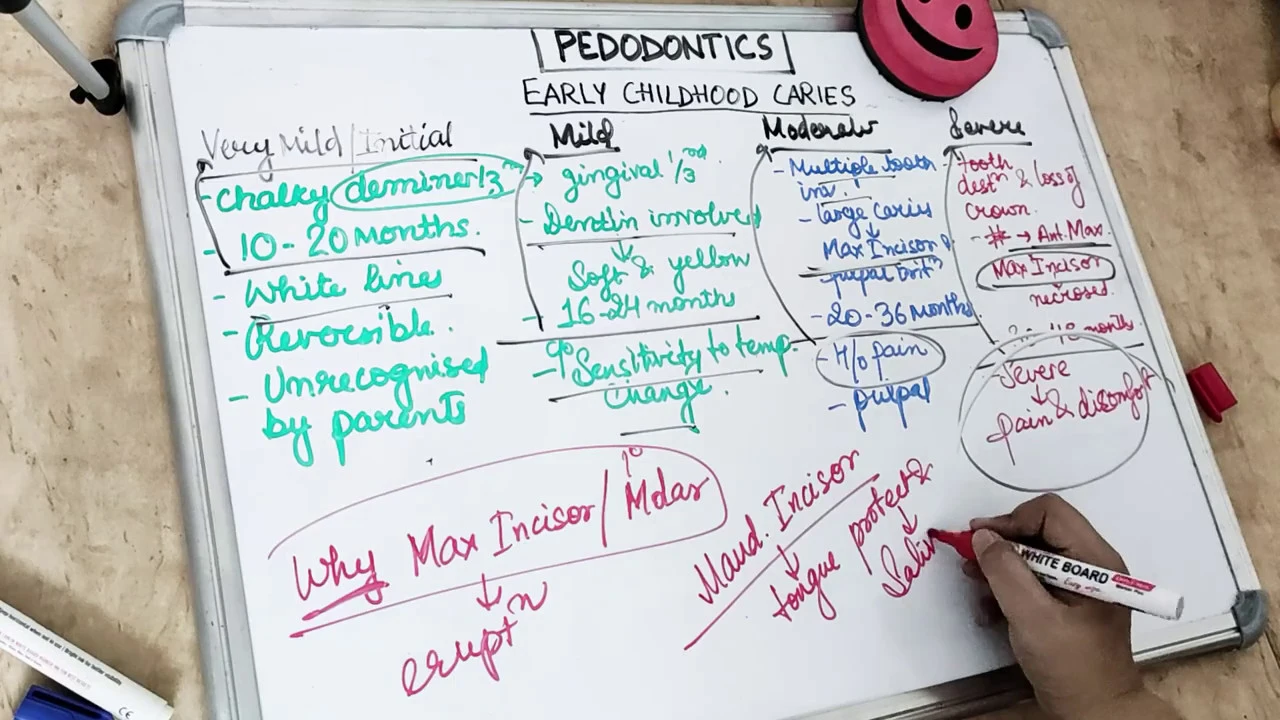 PEDODONTICS
EARLY CHILDHOOD CARIES
Very Mild/Initial
- Chalky deminer 1/3
- 10-20 Months.
- White lines
- Reversible.
- Unrecognised
by parents
Mild
→ gingival 1/3rd
- Dentin involved
↓
Soft & yellow
- 16-24 months
- Sensitivity to temp.
Change
Moderate
- Multiple tooth
inv.
- large caries
↓
Max Incisor &
pulpal
- 20-36 months
- H/o pain
- pulpal
Severe
- tooth
destn & loss of
crown.
- # → Ant. Max.
Max Incisor
necrosed
months
- Severe
↓
pain & discomfort
Why Max Incisor/1° Molar
↓
eruptn
Mand. Incisor
↓
tongue protect &
↓
Saliv
WHITE BOARD